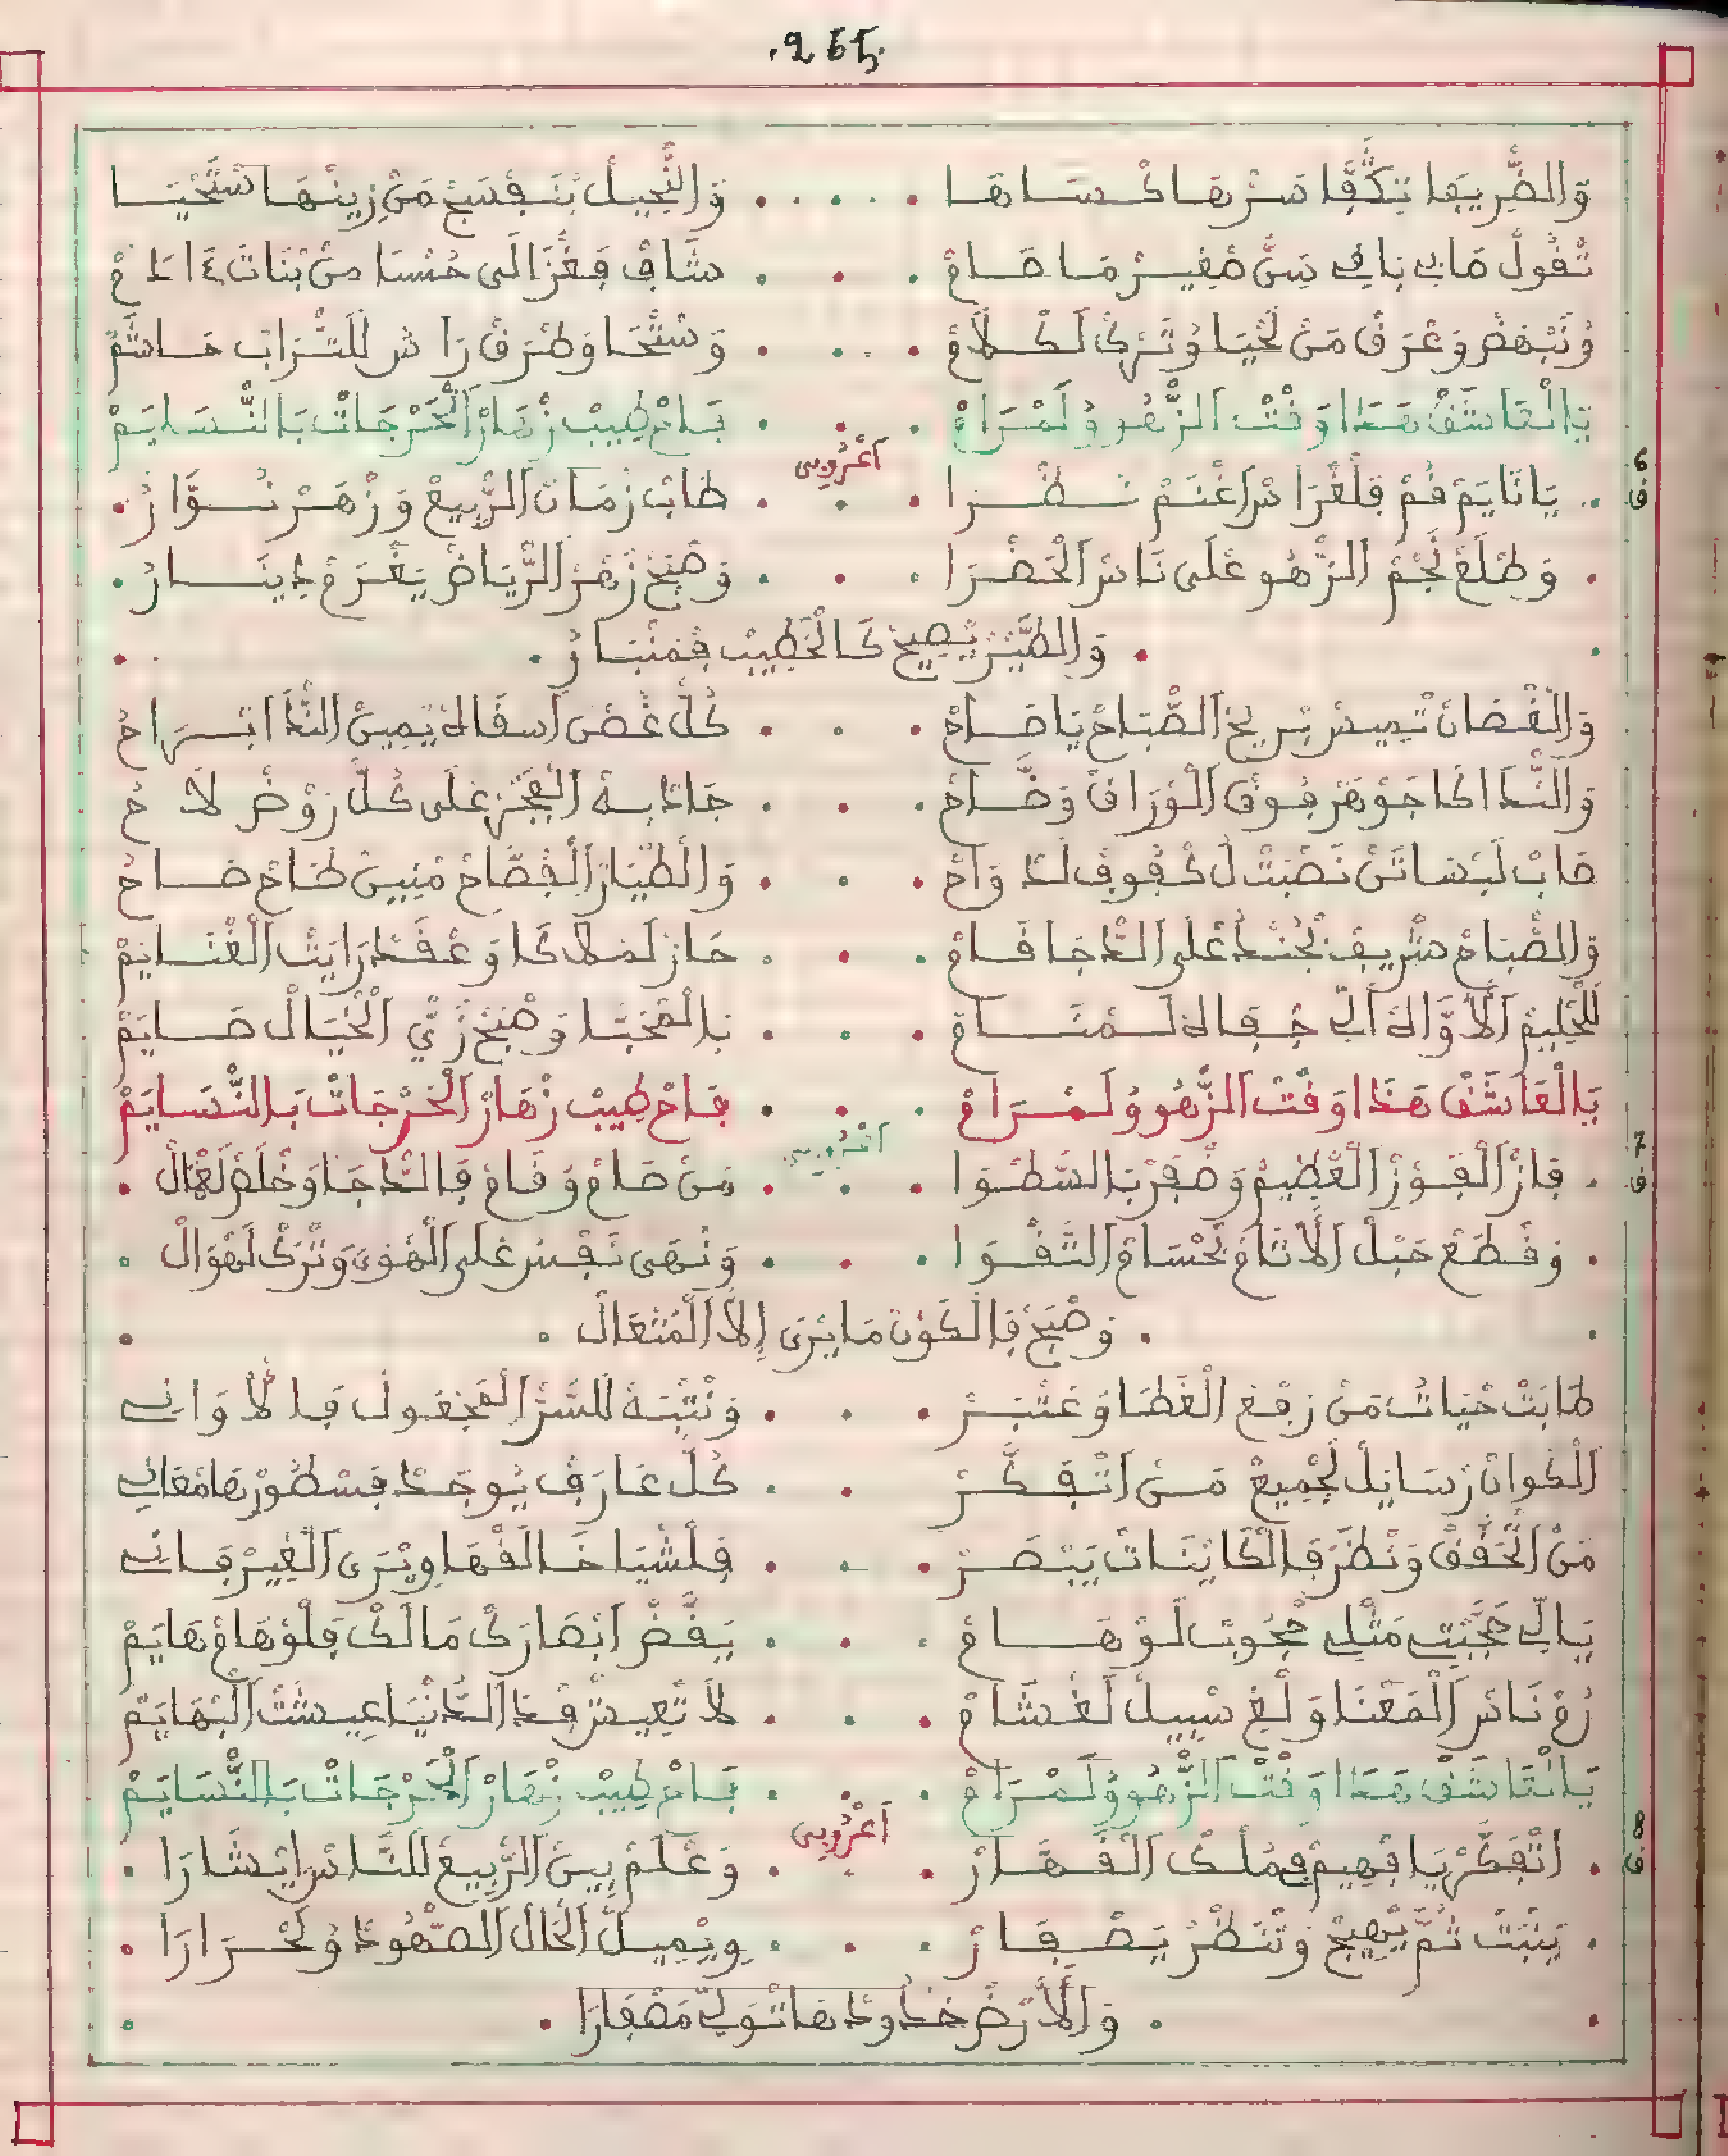 .265.
وَالضَّرِيفَا تَكَفَّا سَرْهَا كْسَاهَا وَالنَّجِيلْ بْنَفْسَجْ مَنْ زِينْهَا سْتَحْيَا
تْقُولْ مَابِي نَاسِي مَا صَاحْ شَافْ فَغْزَالَى حُسْنَا مَنْ بْنَاتْ
وَعْرَقْ مَنْ لَحْيَا وُتْرَكْ لَكْلَامْ وَسْتْحَا وَطْرَقْ رَاسُ لَلتْرَابْ حَاشَمْ
يَا لْعَاشَقْ هَذَا وَقْتْ الزّْهُو وُلَمْرَامْ فَاحْ طِيبْ زْهَارْ الْحَرْجَاتْ بَالنّْسَايَمْ
اَعْرُوبِي
6 ق يَا نَايَمْ قُمْ فَلْغْرَاسْ اغْتَمْ نَظْرَا طَابْ زْمَانْ الرّْبِيعْ وَزْهَرْ نُوَّارُ
وَطْلَعْ نْجَمْ الزّْهُو عْلَى نَاسْ الْحَضْرَا وَصْبَحْ زْهَرْ الرّْيَاضْ يَغْرَمْ دِينَارُ
وَالطَّيْرْ يْصِيحْ كَالْخْطِيبْ فْمَنْبَارُ
وَالْغْصَانْ تْمِيسْ بْرِيحْ الصّْبَاحْ يَا صَاحْ كُلّْ غْصَنْ اسْقَاهْ يْمِينْ النّْدَا
وَالنّْدَا كَا جَوْهَرْ فُوقْ الْوْرَاقْ وَضَّاحْ جَادْ بِهْ الْفْجَرْ عْلَى كُلّْ رَوْضْ لَاحْ
صَابْ لَبْسَاتَنْ نَصْبَتْ لَكْفُوفْ وَالطْيَارْ الْفْصَّاحْ مْنِينْ صَاحْ
وَالصّْبَاحْ شْرِيفْ بْجُنْدُ عْلَى الدّْجَا قَامْ حَازْ لَمْلَاكَا وَعْقَدْ رَايْتْ الْغْنَايَمْ
لَلْحْلِيمْ الَاوَّاهْ الِّي جْفَاهْ لَمْنَامْ بَالْمْحَبَّا وَصْبَحْ زَيّْ الْخْيَالْ صَايَمْ
يَا لْعَاشَقْ هَذَا وَقْتْ الزّْهُو وُلَمْرَامْ فَاحْ طِيبْ زْهَارْ الْحَرْجَاتْ بَالنّْسَايَمْ
اَعْرُوبِي
7 ق فَازْ الْفَوْزْ الْعْظِيمْ وَضْفَرْ بَالسَّطْوَا مَنْ صَامْ وَقَامْ فَالدّْجَا وَخْلَصْ لَعْمَالْ
وَقْطَعْ حَبْلْ الَاثَامْ بَحْسَامْ التَّقْوَا وَنْهَى نَفْسُ عْلَى الْهْوَى وَتْرَكْ لَهْوَالْ
وَصْبَحْ فَالْكَوْنْ مَا يْرَى إِلَّا الْمُتْعَالْ
طَابَتْ حْيَاتُ مَنْ رْفَعْ الْغْطَا وَعْتْبَرْ وَنْتْبَهْ لَلسَّرْ الْمْجْعُولْ فَالَاوَانِي
الْكْوَانْ رْسَايَلْ لَجْمِيعْ مَنْ اتْفَكَّرْ كُلّْ عَارَفْ يُوجَدْ فَسْطُورْهَا مْعَانِي
مَنْ اتْحَقَّقْ وَنْظَرْ فَالْكَايْنَاتْ يَبْصَرْ فَلْشْيَا خَالَقْهَا وِيْرَى الْغِيرْ فَانِي
يَا الِّي حَجْبَتِ مَثْلِي حْجُوبْ لَوْهَامْ يَقَّضْ ابْصَارَكْ مَالَكْ فَلْوْهَامْ هَايَمْ
رُمْ نَاسْ الْمَعْنَا وَلْغِ سْبِيلْ لَغْشَامْ لَا تْعِيشْ فْدَا الدّْنْيَا عِيشْتْ الْبْهَايَمْ
يَا لْعَاشَقْ هَذَا وَقْتْ الزّْهُو وُلَمْرَامْ فَاحْ طِيبْ زْهَارْ الْحَرْجَاتْ بَالنّْسَايَمْ
اَعْرُوبِي
8 ق اتْفَكَّرْ يَا فْهِيمْ فِي مُلْكْ الْقَهَّارْ وَعْلَمْ بِينْ الرّْبِيعْ لَلنَّاسْ إِيْشَارَا
يَنْبَتْ ثُمَّ يْهِيجْ وَتْنَظْرُ يَصْفَارْ وِيْمِيلْ الْحَالْ الصّْهُودْ وُلَحْرَارَا
وَالَارْضْ خْدُودْهَا تْوَلِّي مَصْفَارَا